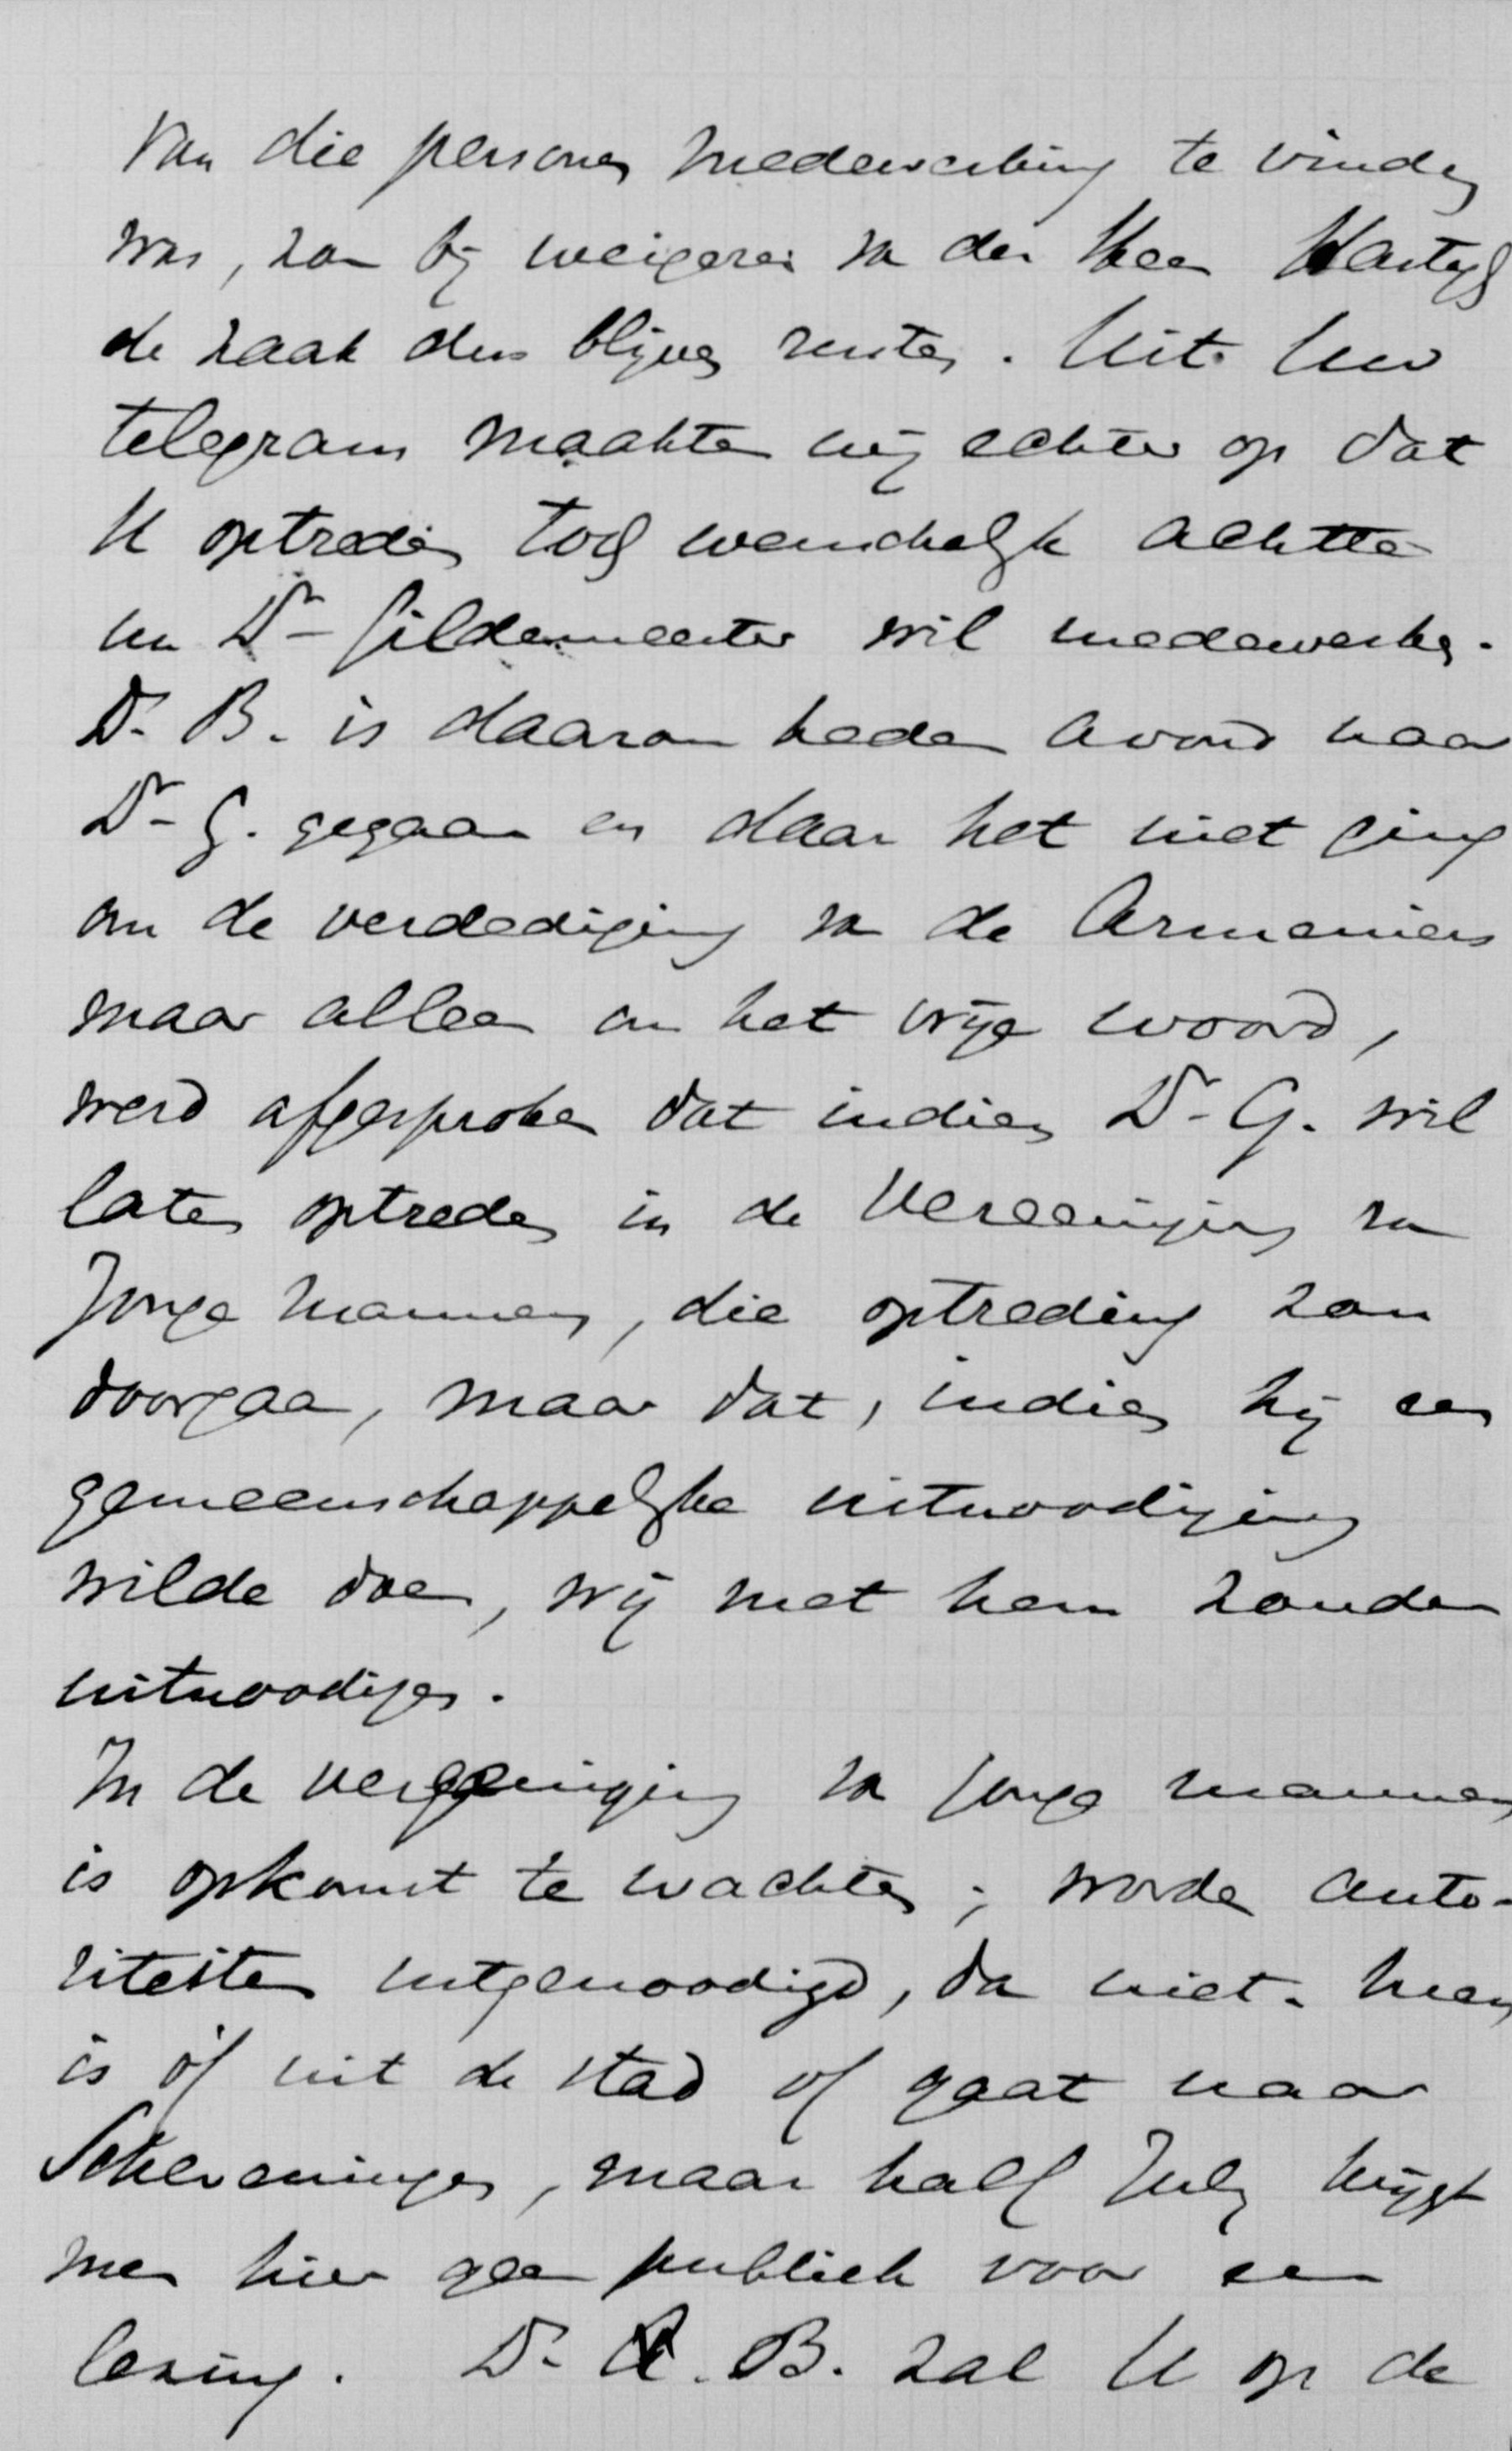 van die personen medewerking te vinden
was, zou bij weigeren van den Heer
de zaak dus blijven rusten. Uit Uw
telegram maakten wij echter op dat
U optreden toch wenschelijk achtte
nu Dr Gildemeester wil medewerken.
Dr. B. is daarom heden avond naar
Dr G. gegaan en daar het niet ging
om de verdediging van de Armeniers
maar alleen om het vrije woord,
werd afgesproken dat indien Dr G. wil
laten optreden in de Vereeniging van
Jonge mannen, die optreding zou
doorgaan, maar dat, indien hij een
gemeenschappelijke uitnoodiging
wilde doen, wij met hem zouden
uitnoodigen.
In de vereeniging van jonge mannen
is opkomst te wachten; worden auto-
riteiten uitgenoodigd, dan niet. Men
is óf uit de stad of gaat naar
Scheveningen, maar half July krijgt
men hier geen publiek voor een
lezing. Dr. B. zal U op de